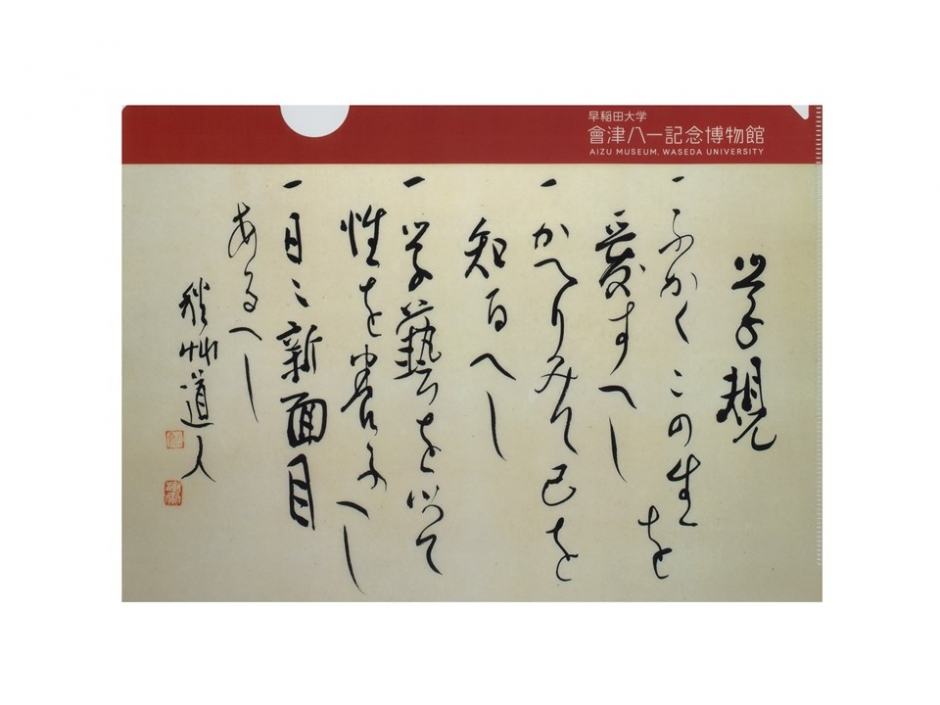 早稲田大学
會津八一記念博物館
AIZU MUSEUM, WASEDA UNIVERSITY
学規
一ふかくこの生を
愛すへし
一かへりみて己を
知るへし
一学藝を以て
性を養ふへし
一日々新面目
あるへし
秋艸道人